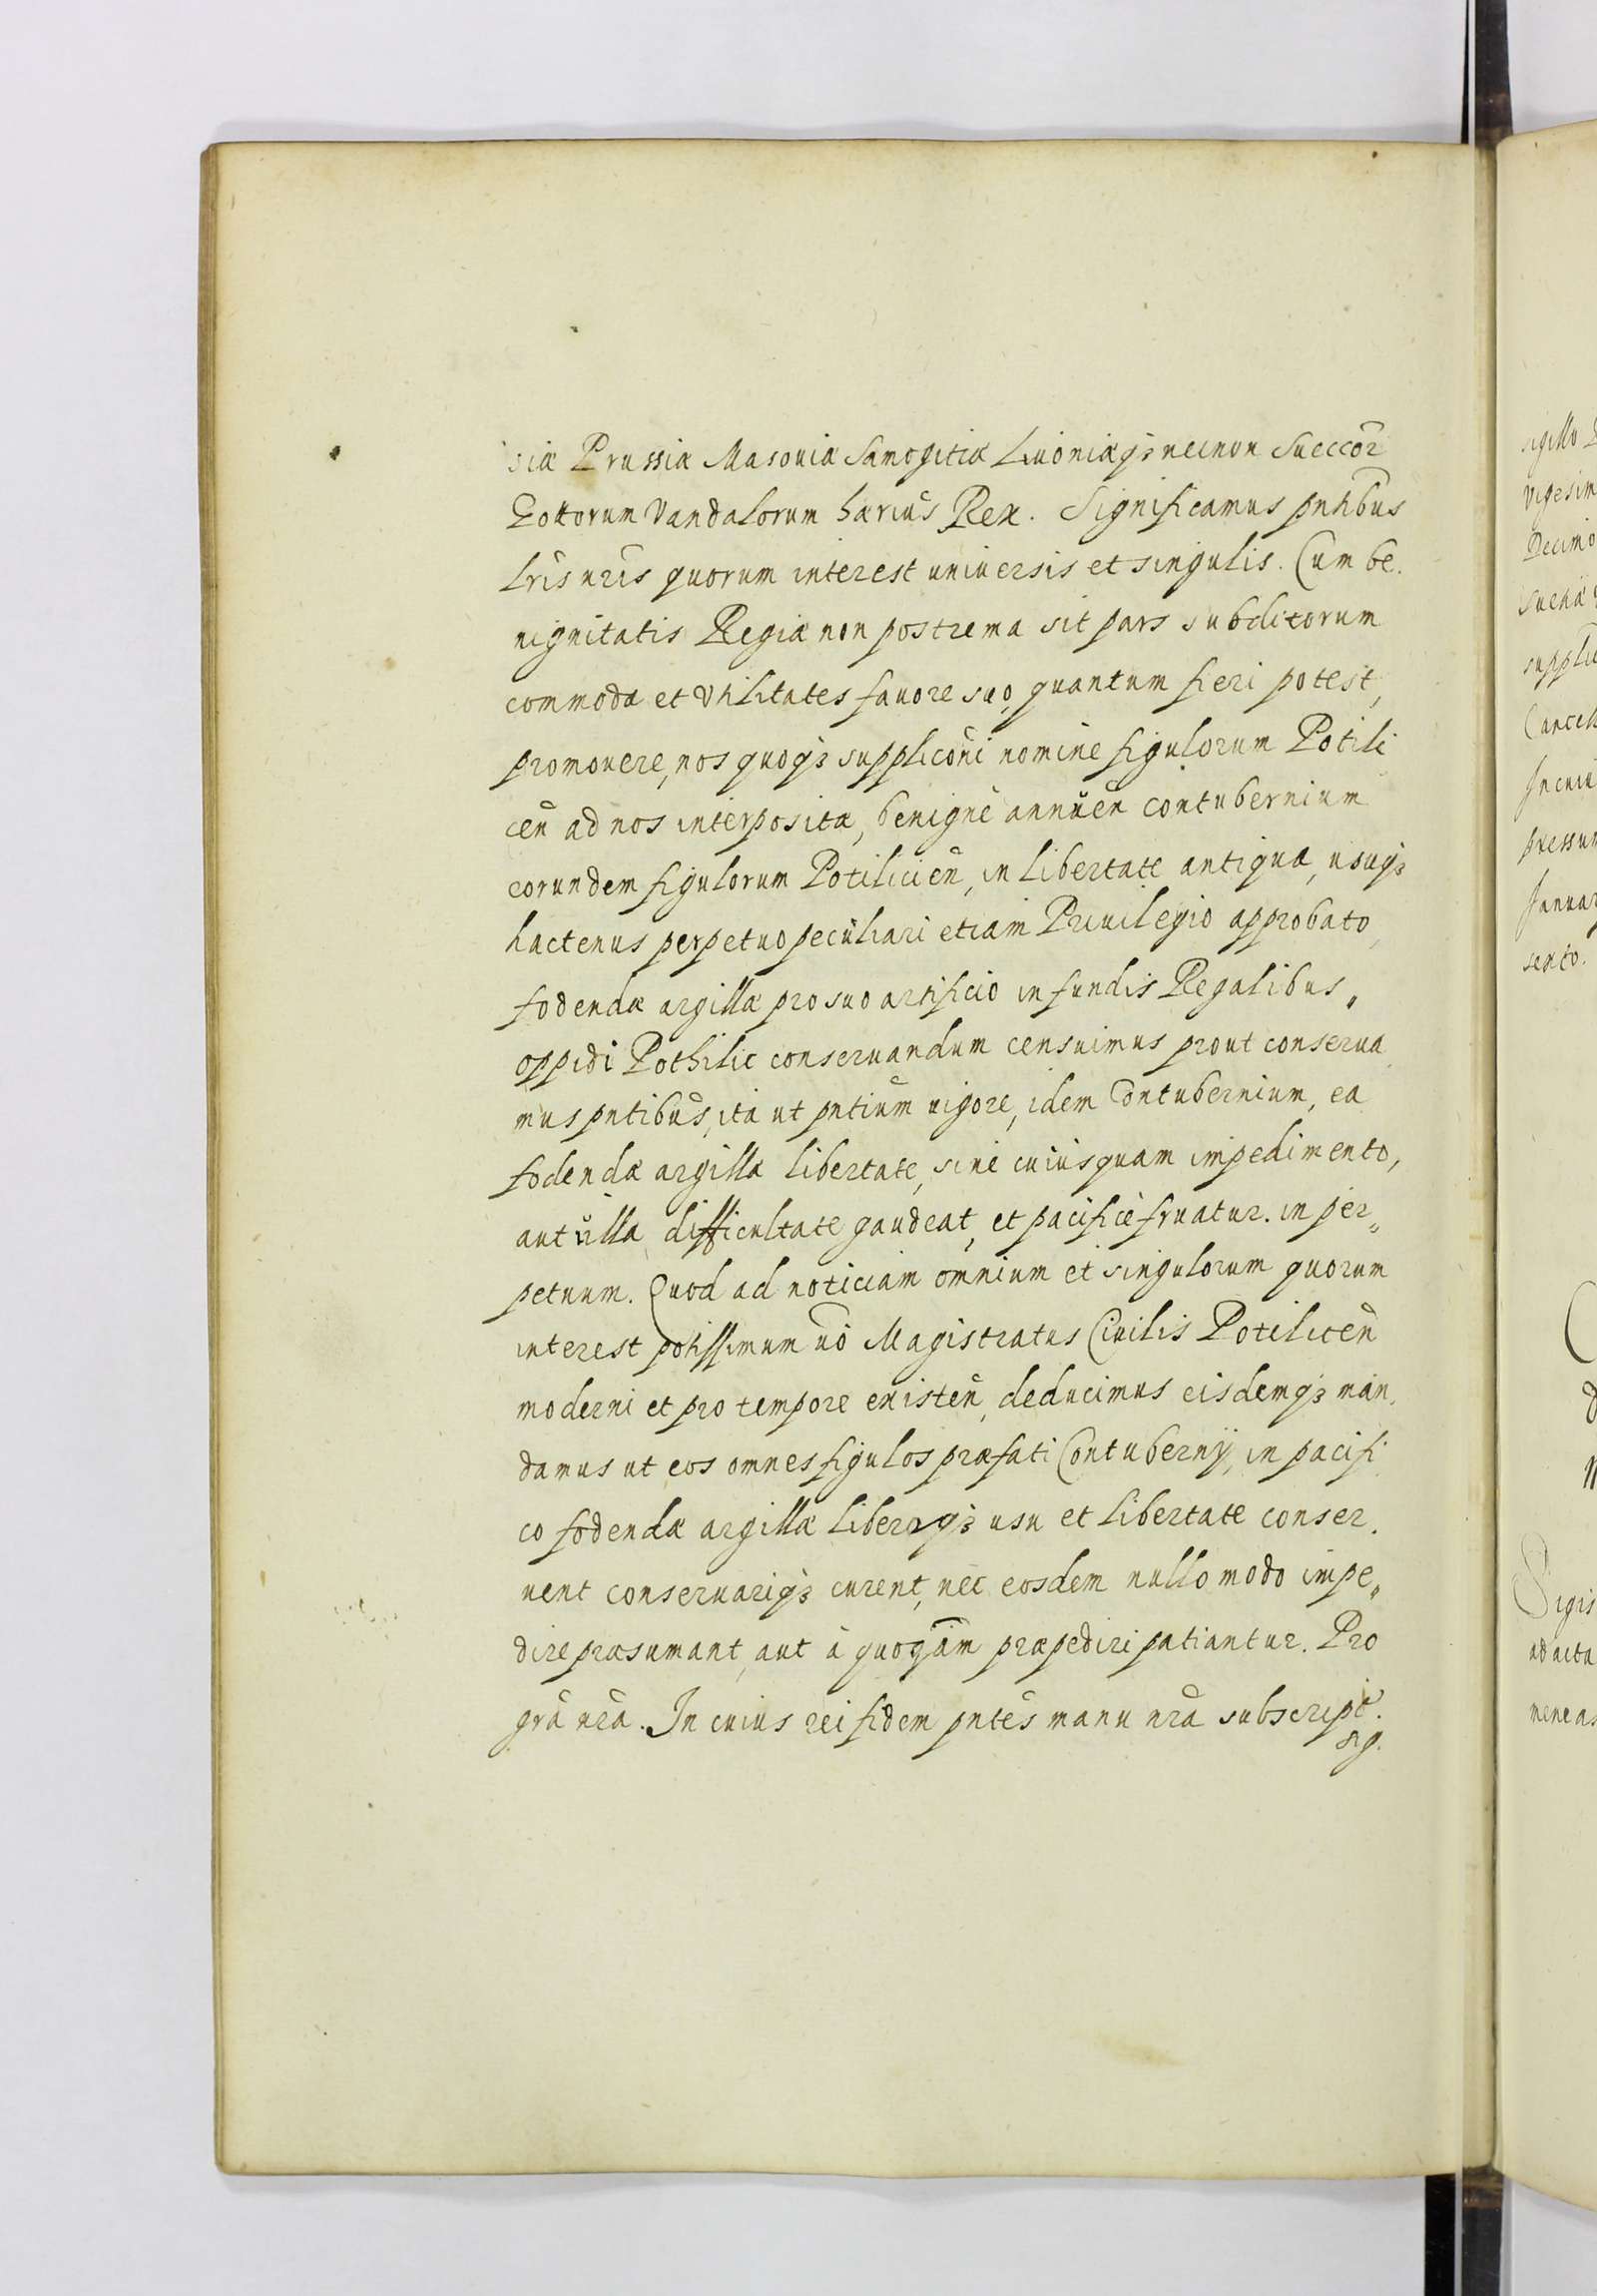 siæ Prussiæ Masouiæ Samogitiæ Liuoniæq3 necnon Sueccor̃
Gottorum Vandalorum hærius̃ Rex. Significamus pntibus
Lris nris quorum interest uniuersis et singulis. Cum be.
nignitatis Regiæ non postrema sit pars subditorum
commoda et Vtilitates fauore suo, quantum fieri potest,
promouere, nos quoq3 supplicõni nomine figulorum Potili
ceñ ad nos interposita, benigne annueñ contubernium
eorundem figulorum Potilicieñ, in libertate antiqua, usuq3
hactenus perpetuo peculiari etiam Priuilegio approbato,
fodendæ argillæ pro suo artificio in fundis Regalibus„
oppidi Pothilic conseruandum censuimus prout conserua
mus pntibus, ita ut pntium uigore, idem Contubernium, ea
fodendæ argillæ libertate, sine cuiusquam impedimento,
aut ulla difficultate gaudeat, et pacifice fruatur. in per„
petuum. Quod ad noticiam omnium et singulorum quorum
interest potissimum uõ Magistratus Ciuilis Potiliceñ
moderni et pro tempore existeñ, deducimus eisdemq3 man.
damus ut eos omnes figulos præfati Contubernÿ, in pacifi
co fodendæ argillæ liberoq3 usu et libertate conser.
uent conseruariq3 curent, nec eosdem nullo modo impe„
dire præsumant, aut à quoq̃am præpediri patiantur. Pro
grã nrã. In cuius rei fidem pntes manu nrã subscript.
sig.
sigillo
Vigesim
Decimo
Sueciæ
supplic
Cancell
In cuiu
pressum
Januar
sexto.
Sigis
ad acta